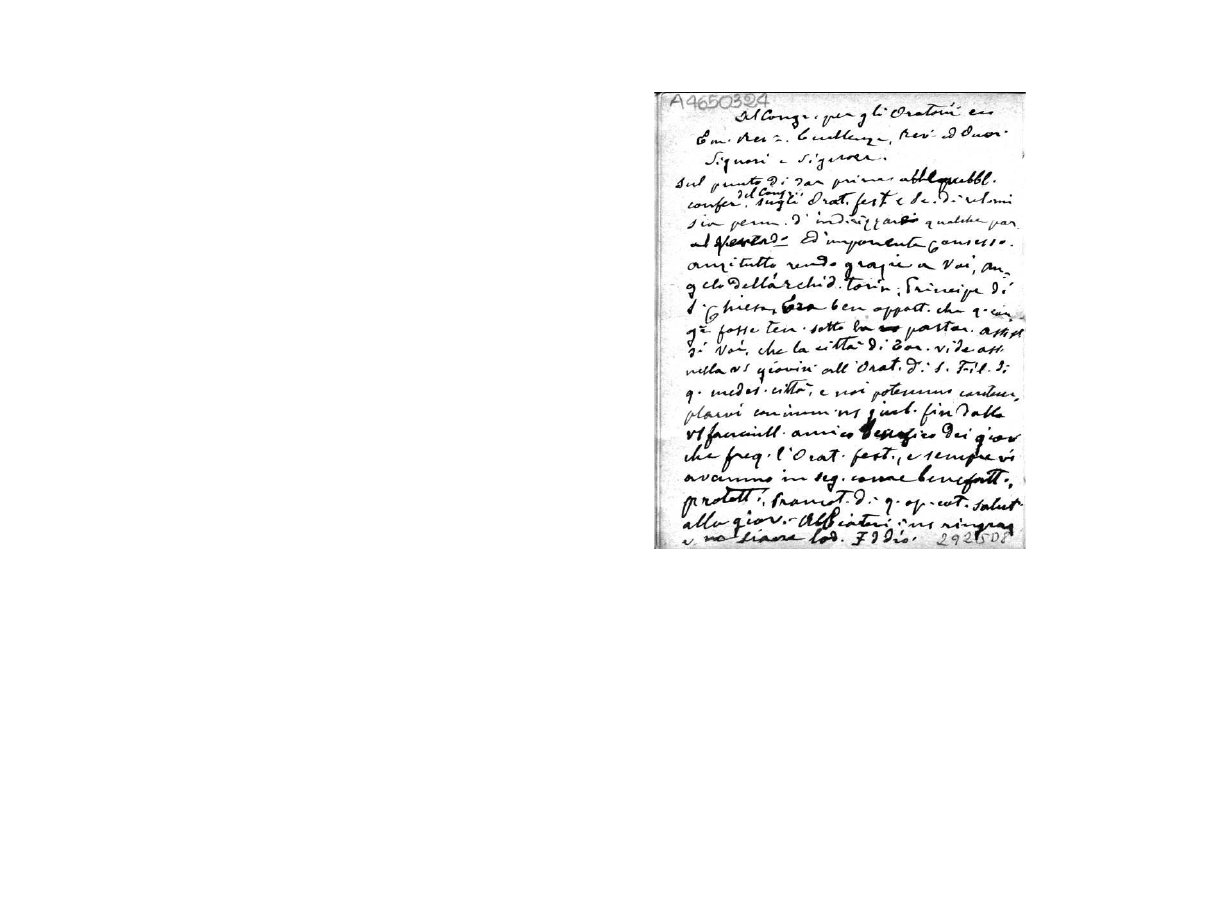 A4650324
Al Congr. per gli Oratorii ecc
Em. Rev.ma Eccellenze, Rev. ed Onor.
Signori e Signore.
Sul punto di dar prime
del Congr.
confer. sugli Orat. fest. e Sc. di relimi
sia perm. d'indirizzare qualche par.
al ed imponente Consesso.
anzitutto rendo grazie a Voi, An-
gelo dell'Archid. Torin., Principe di
S. Chiesa, Era ben opport. che q. con
g.o fosse ten. sotto la pastor. assist
di Voi, che la città di Tor. vide ass.
nella vs giovin. all'Orat. di S. Fil. di
q. medes. città, e noi potemmo contem-
plarvi con imm. ns giub. fin dalla
vs fanciull. amico benefico dei giov
che freq. l'Orat. fest., e sempre vi
avemmo in seg. come benefatt.,
protett., Promot. di q. op. cot. salut
alla giov. - Abbiatevi i ns ringraz
e ne siano lod. Iddio. 292508